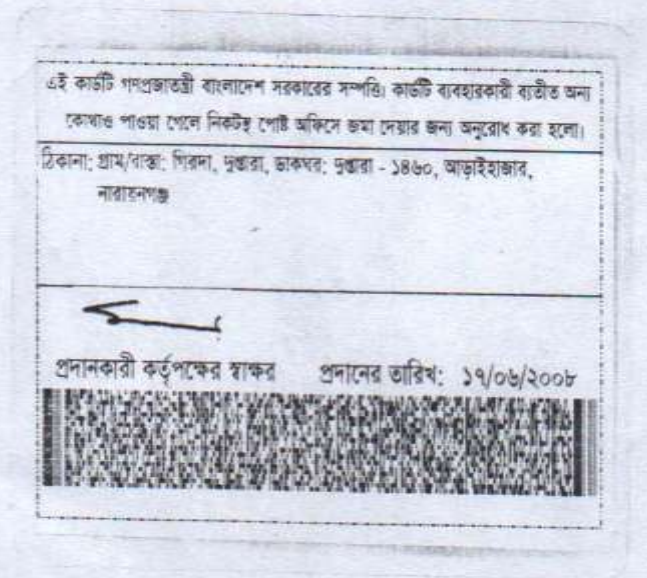 এই কার্ডটি গণপ্রজাতন্ত্রী বাংলাদেশ সরকারের সম্পত্তি। কার্ডটি ব্যবহারকারী ব্যতীত অন্য
কোথাও পাওয়া গেলে নিকটস্থ পোষ্ট অফিসে জমা দেয়ার জন্য অনুরোধ করা হলো।
ঠিকানা: গ্রাম/রাস্তা: গিরদা, দুপ্তারা, ডাকঘর: দুপ্তারা - ১৪৬০, আড়াইহাজার,
নারায়নগঞ্জ
প্রদানকারী কর্তৃপক্ষের স্বাক্ষর প্রদানের তারিখ: ১৭/০৬/২০০৮